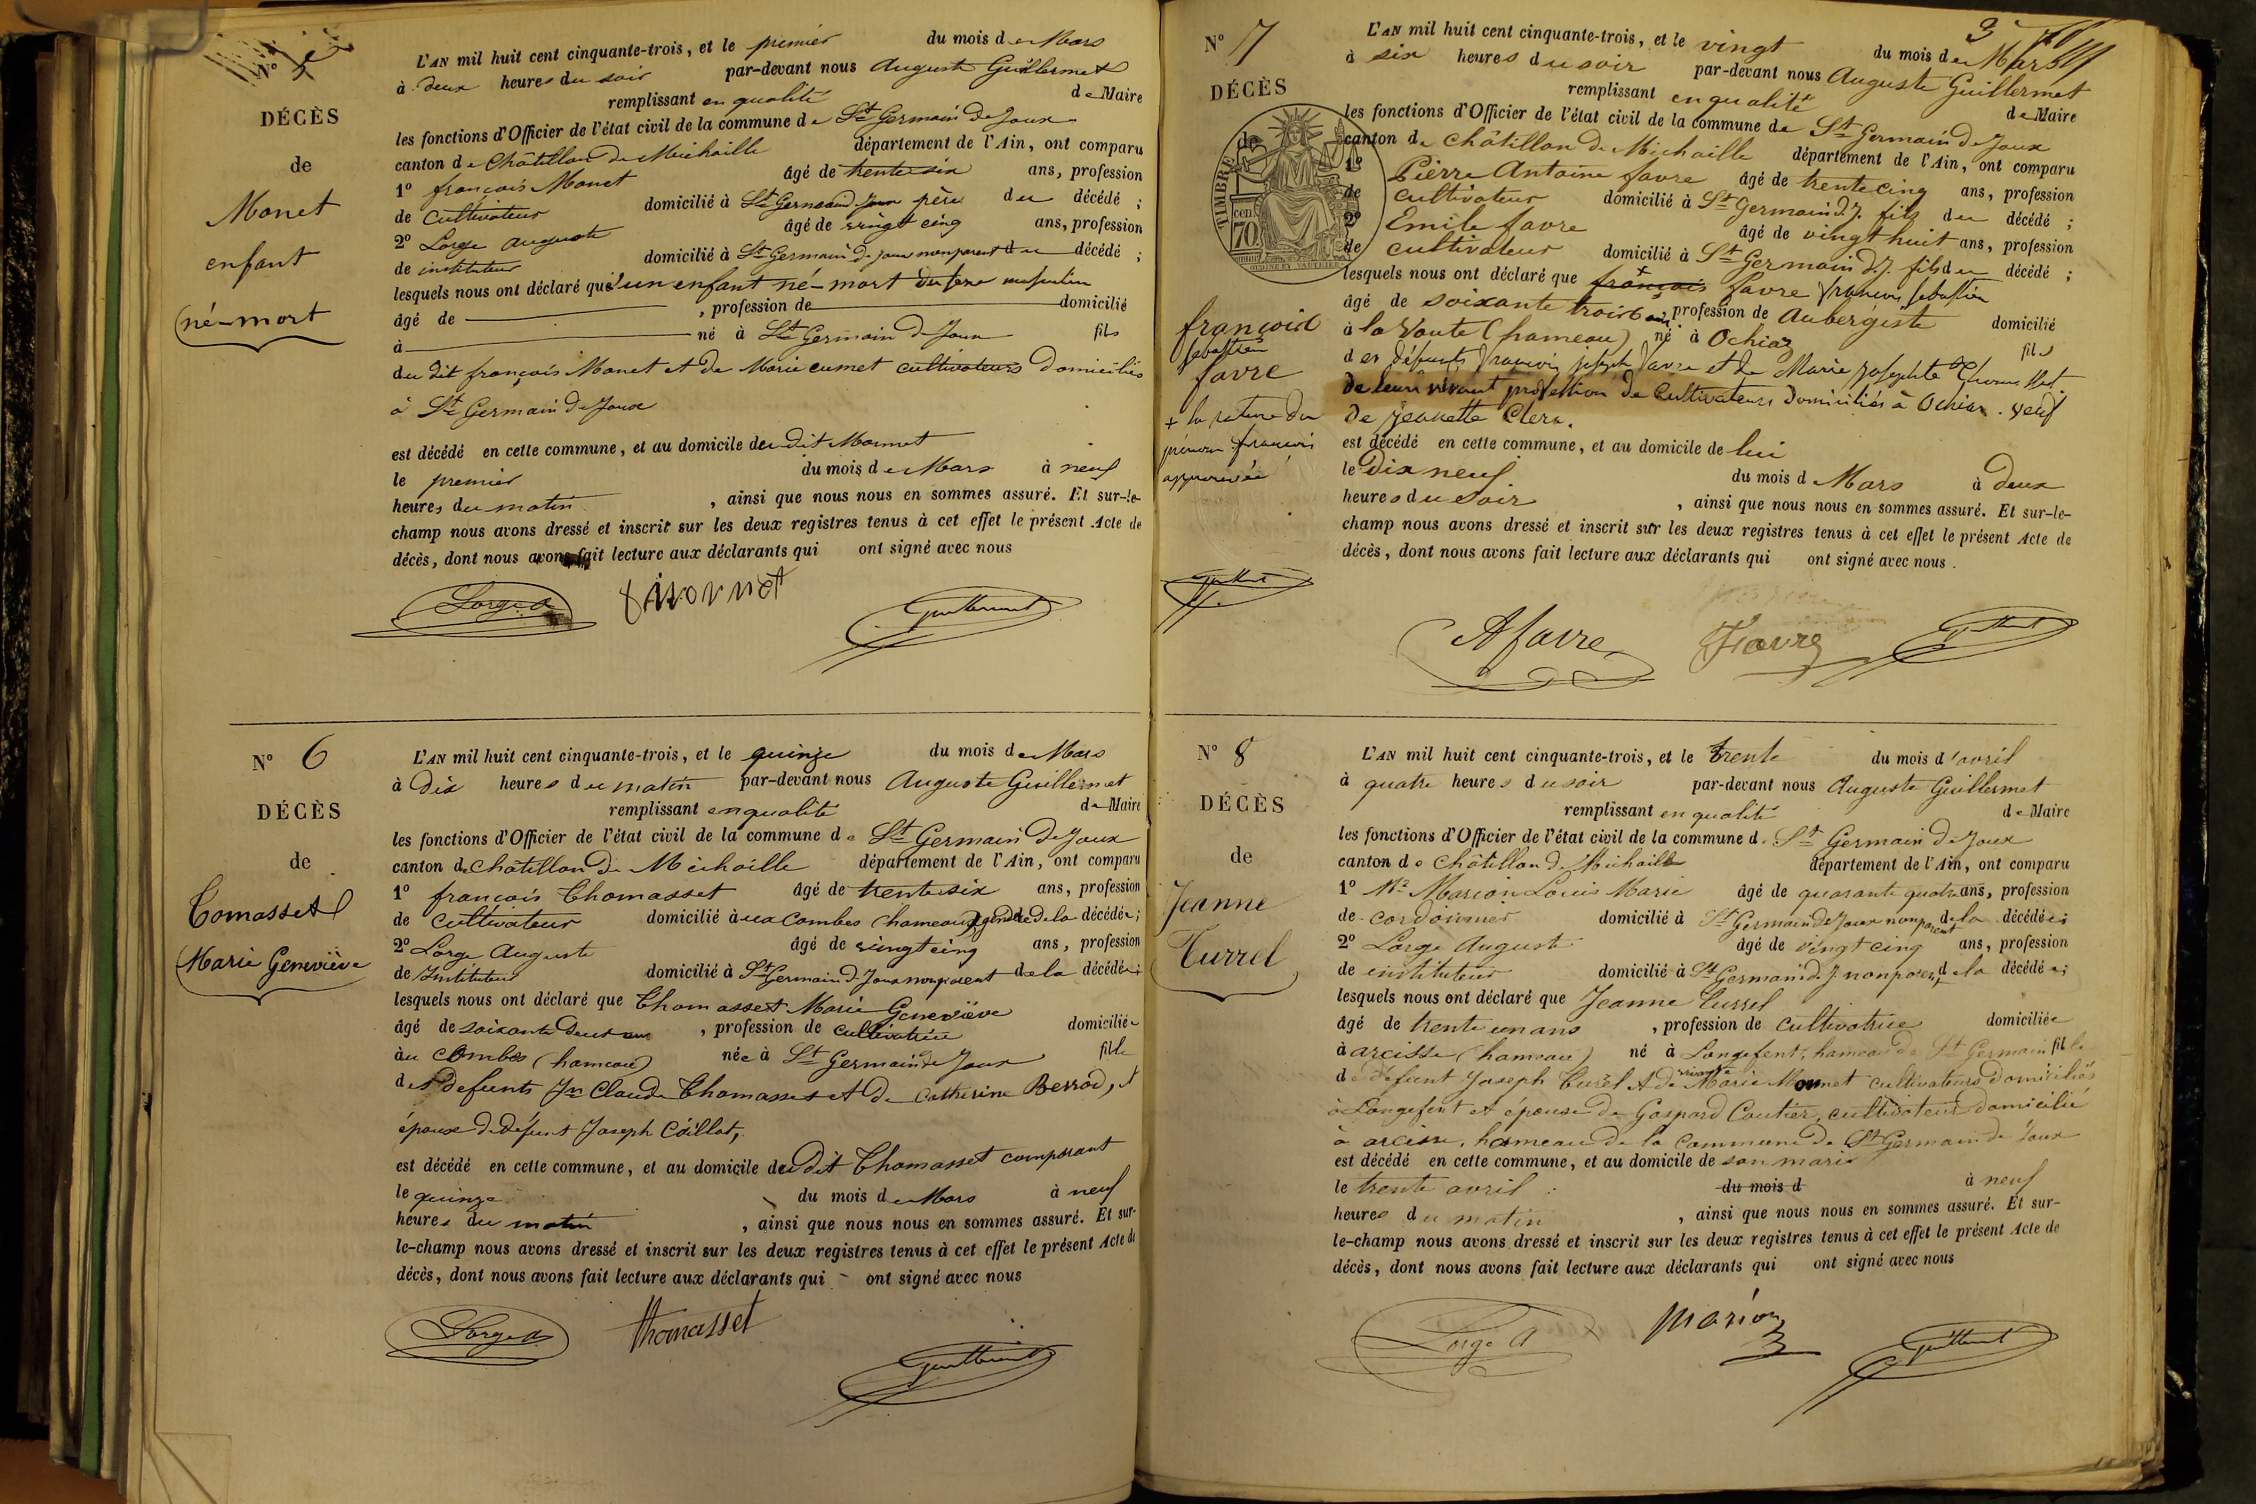 N°
DÉCÈS
de
Monet
enfant
né-mort
L'AN mil huit cent cinquante-trois, et le premier du mois de Mars
à deux heures du soir par-devant nous Auguste Guillermet
remplissant en qualité de Maire
les fonctions d'Officier de l'état civil de la commune de St Germain de Joux
canton de Châtillon de Michaille département de l'Ain, ont comparu
1° françois Monet âgé de trente six ans, profession
de cultivateur domicilié à St Germain d Joux père du décédé ;
2° Lorge auguste âgé de vingt cinq ans, profession
de instituteur domicilié à St Germain de joux non parent du décédé ;
lesquels nous ont déclaré qu'un enfant né-mort du sexe masculin
âgé de , profession de domicilié
à né à St Germain de Joux fils
du dit françois Monet et de Marie cumet cultivateurs domiciliés
à St Germain de Joux
est décédé en cette commune, et au domicile du dit Monnet
le premier du mois de Mars à neuf
heures du matin , ainsi que nous nous en sommes assuré. Et sur-le-
champ nous avons dressé et inscrit sur les deux registres tenus à cet effet le présent Acte de
décès, dont nous avons fait lecture aux déclarants qui ont signé avec nous
Lorge a monnet Guillermet
N° 6
DÉCÈS
de
Tomasset
Marie Geneviève
L'AN mil huit cent cinquante-trois, et le quinze du mois de Mars
à Dix heures du matin par-devant nous Auguste Guillermet
remplissant en qualité de Maire
les fonctions d'Officier de l'état civil de la commune de St Germain de Joux
canton de Châtillon de Michaille département de l'Ain, ont comparu
1° françois Thomasset âgé de trente six ans, profession
de cultivateur domicilié à ux Combes (hameau) gendre de la décédée ;
2° Lorge Auguste âgé de vingt cinq ans, profession
de Instituteur domicilié à St Germain d Joux non parent de la décédée ;
lesquels nous ont déclaré que Thomasset Marie Geneviève
âgé de soixante deux ans , profession de cultivatrice domiciliée
àu Combes (hameau) née à St Germain de Joux fille
des defunts Jn Claude Thomasset et de Catherine Berrod, et
épouse de défunt Joseph Coillot,
est décédé en cette commune, et au domicile du dit Thomasset comparant
le quinze du mois de Mars à neuf
heures du matin , ainsi que nous nous en sommes assuré. Et sur-
le-champ nous avons dressé et inscrit sur les deux registres tenus à cet effet le présent Acte de
décès, dont nous avons fait lecture aux déclarants qui ont signé avec nous
Lorge a thomasset Guillermet
3
N° 7
DÉCÈS
de
TIMBRE
70
françois
sebastien
favre
+ la rature du
prénom françois
approuvée
L'AN mil huit cent cinquante-trois, et le vingt du mois de Mars
à six heures du soir par-devant nous Auguste Guillermet
remplissant en qualité de Maire
les fonctions d'Officier de l'état civil de la commune de St Germain de Joux
canton de Châtillon de Michaille département de l'Ain, ont comparu
1° Pierre Antoine favre âgé de trente cinq ans, profession
de cultivateur domicilié à St Germain d. J. fils du décédé ;
2° Emile favre âgé de vingt huit ans, profession
de cultivateur domicilié à St Germain d. J. fils du décédé ;
lesquels nous ont déclaré que françois favre françois sebastien
âgé de soixante trois ans, profession de Aubergiste domicilié
à la Voute (hameau) né à Ochiaz fils
des défunts françois joseph favre et de Marie josephte
de leur vivant profession de cultivateurs domiciliés à Ochiaz. veuf
de jeanette Clerc.
est décédé en cette commune, et au domicile de lui
le Dix neuf du mois d Mars à deux
heures du soir , ainsi que nous nous en sommes assuré. Et sur-le-
champ nous avons dressé et inscrit sur les deux registres tenus à cet effet le présent Acte de
décès, dont nous avons fait lecture aux déclarants qui ont signé avec nous.
A favre Favre Guillermet
N° 8
DÉCÈS
de
Jeanne
Turrel
L'AN mil huit cent cinquante-trois, et le trente du mois d'avril
à quatre heures du soir par-devant nous Auguste Guillermet
remplissant en qualité de Maire
les fonctions d'Officier de l'état civil de la commune d. St Germain de Joux
canton de Châtillon de Michaille département de l'Ain, ont comparu
1° Marion Louis Marie âgé de quarante quatre ans, profession
de cordonnier domicilié à St Germain de Joux non parent de la décédée ;
2° Lorge Auguste âgé de vingt cinq ans, profession
de instituteur domicilié à St Germain d. J. non parent de la décédée ;
lesquels nous ont déclaré que Jeanne Turrel
âgé de trente un ans , profession de cultivatrice domiciliée
à arcisse (hameau) né à Longefent, hameau de St Germain fille
de défunt Joseph Turel et de vivante Marie Monnet cultivateurs domiciliés
à Longefent et épouse de Gaspard Coutier, cultivateur domicilié
à arcisse, hameau de la commune de St Germain de Joux
est décédé en cette commune, et au domicile de son mari
le trente avril du mois d à neuf
heures du matin , ainsi que nous nous en sommes assuré. Et sur-
le-champ nous avons dressé et inscrit sur les deux registres tenus à cet effet le présent Acte de
décès, dont nous avons fait lecture aux déclarants qui ont signé avec nous
Lorge A Marion Guillermet